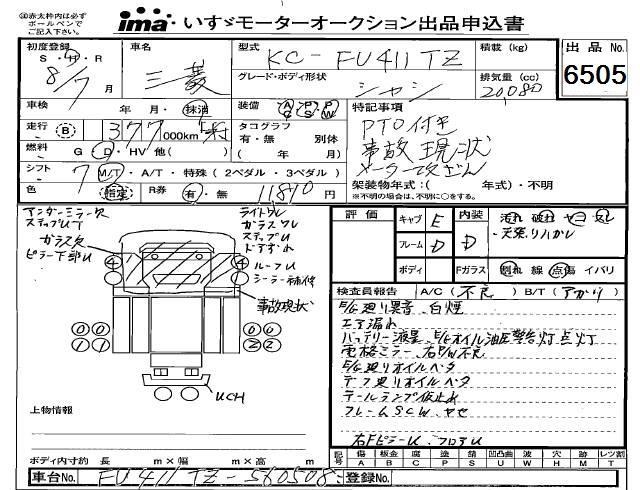 ㊟赤太枠内は必ず
ボールペンで
ご記入下さい。
ima いすゞモーターオークション出品申込書
初度登録 S・H・R 8/7月
車名 三菱
型式 KC-FU411TZ
積載 (kg)
出品No 6505
グレード・ボディ形状 シャシ
排気量 (cc) 20080
車検 年 月・抹消
装備 AC PS PW
特記事項
PTO付き
事故現状
メーター改ざん
走行 B 377,000km
タコグラフ 有・無 別体
( 年 月)
燃料 G D・HV 他( )
シフト 7 M/T・A/T・特殊 (2ペダル・3ペダル)
架装物年式:( 年式)・不明
※不明の場合は、不明に○をする。
色 指定 R券 有・無 11810円
アンダーミラー欠
ステップUT
ガラス欠
ピラー下部U
ライトワレ
ガラスワレ
ステップU
ドアずれ
ルーフU
シーラー補修
事故現状
4 4
0 0 0 1
1 1 2 2
UCH
評価 キャブ E 内装 D 汚れ 破れ ヤコ欠
フレーム D ・天張りハガレ
ボディ Fガラス 割れ 線 点傷 イバリ
検査員報告 A/C(不良) B/T(アガリ)
E/G廻り異音、白煙
エア漏れ
バッテリー液量、E/Gオイル油圧警告灯点灯
電格ミラー、右P/W不良
E/G廻りオイルベタ
デフ廻りオイルベタ
テールランプ仮止め
フレームSCW、ヤセ
右FピラーU、フロアU
上物情報
ボディ内寸約 長 m×幅 m×高 m
記号 傷 A 板金 B 腐 C 塗 P 錆 S 凹凸曲 U 波 W 穴 H 跡 M レツ割 T
車台No. FU411TZ-560508
登録No.